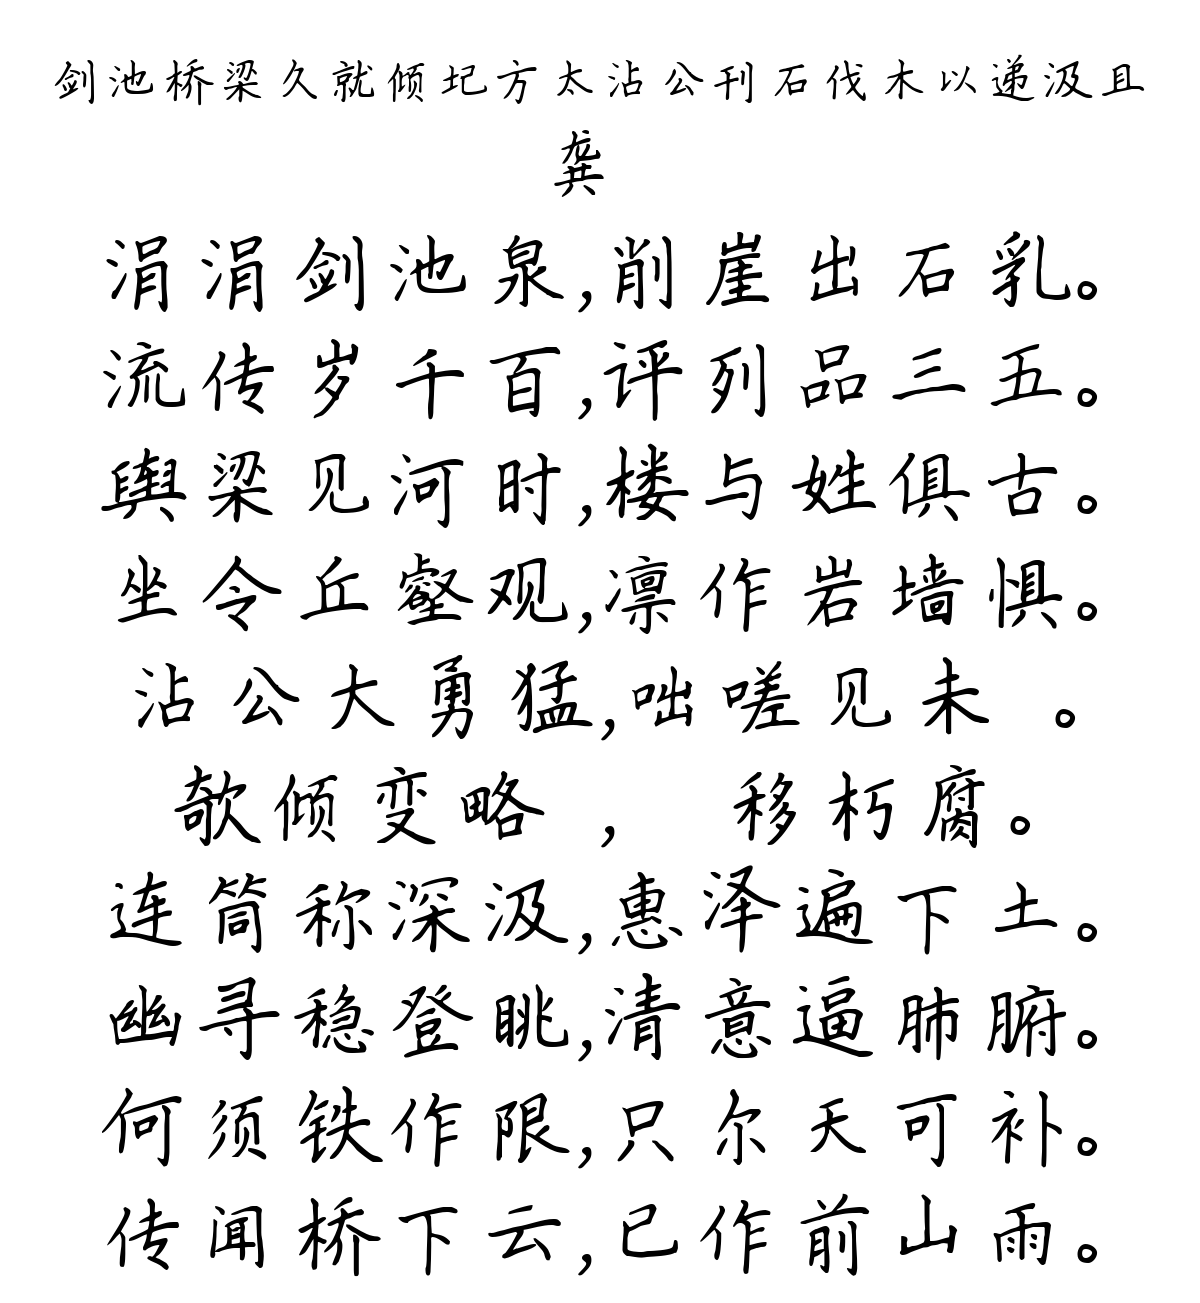 剑池桥梁久就倾圮方太沾公刊石伐木以递汲且
龚
涓涓剑池泉,削崖出石乳。
流传岁千百,评列品三五。
舆梁见河时,楼与姓俱古。
坐令丘壑观,凛作岩墙惧。
沾公大勇猛,咄嗟见未 。
欹倾变略 , 移朽腐。
连筒称深汲,惠泽遍下土。
幽寻稳登眺,清意逼肺腑。
何须铁作限,只尔天可补。
传闻桥下云,已作前山雨。